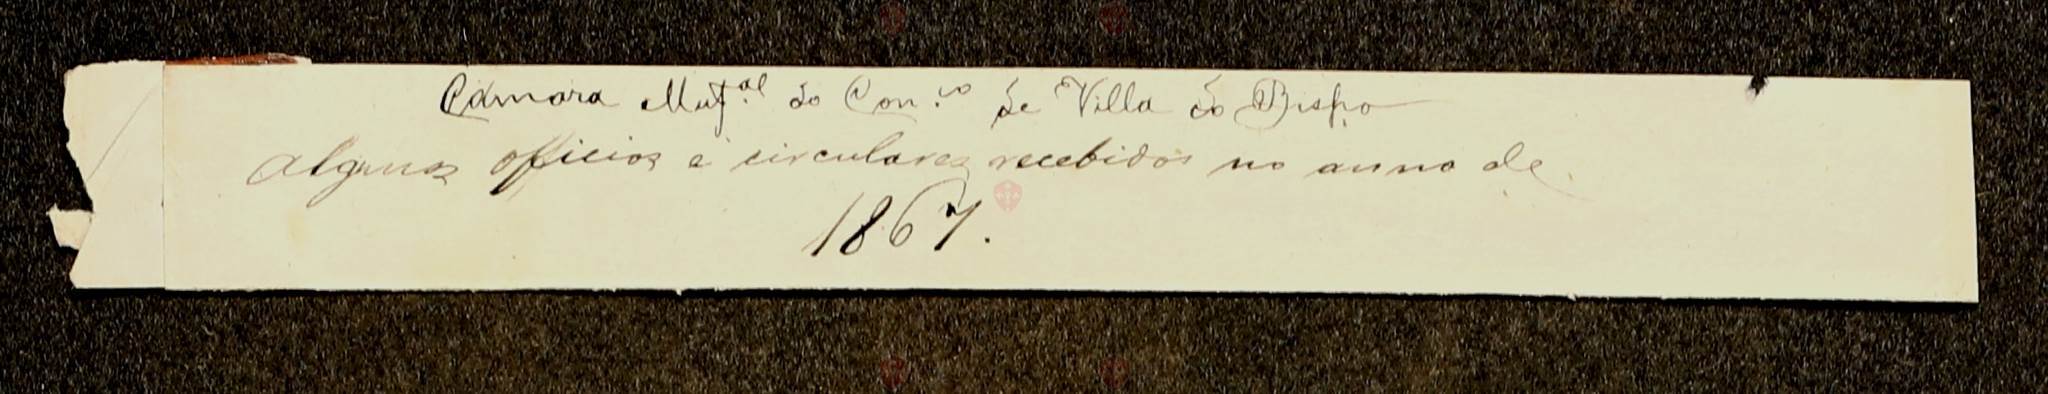 Camara Mup.al do Con.co de Villa do Bispo
Alguns officios e circulares recebidos no anno de
1867.